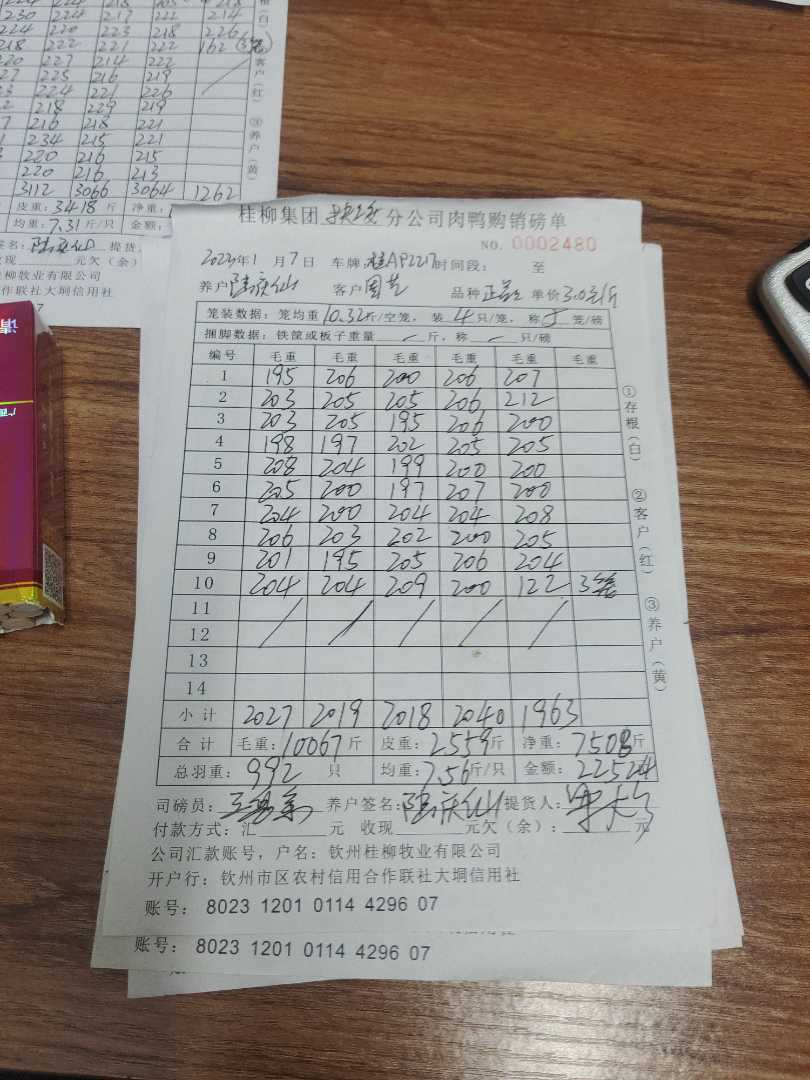 224 224 218 205 218
230 224 217 222 214
224 220 223 218 226
218 222 221 222 162 (3笼)
220 227 214 222
27 225 216 219
23 224 221 226
2 218 229 219
7 216 218 221
234 215 221
220 216 215
220 216 213
3112 3066 3064 1262
皮重:3418斤 净重:
均重:7.31斤/只 金额:
签名: 提货
收现 元欠(余)
桂柳牧业有限公司
合作联社大垌信用社
7
(白)
客户(红)
③养户(黄
桂柳集团 分公司肉鸭购销磅单
NO. 0002480
2023年1月7日 车牌:桂AP2217 时间段: 至
养户 陆庆仙 客户 周艺 品种 单价 3.0元/斤
笼装数据:笼均重10.32斤/空笼,装4只/笼,称5笼/磅
捆脚数据:铁筐或板子重量 — 斤,称 — 只/磅
编号 毛重 毛重 毛重 毛重 毛重 毛重
1 195 206 200 206 207
2 203 205 205 206 212
3 203 205 195 206 200
4 198 197 202 205 205
5 208 204 199 200 200
6 205 200 197 207 200
7 204 200 204 204 208
8 206 203 202 200 205
9 201 195 205 206 204
10 204 204 209 200 122 3笼
11
12
13
14
小计 2027 2019 2018 2040 1963
合计 毛重:10067斤 皮重:2559斤 净重:7508斤
总羽重:992只 均重:7.56斤/只 金额:22524
司磅员: 养户签名:陆庆仙 提货人:
付款方式:汇 元 收现 元欠(余): 元
公司汇款账号,户名:钦州桂柳牧业有限公司
开户行:钦州市区农村信用合作联社大垌信用社
账号: 8023 1201 0114 4296 07
①存根(白)
②客户(红)
③养户(黄)
账号: 8023 1201 0114 4296 07
请